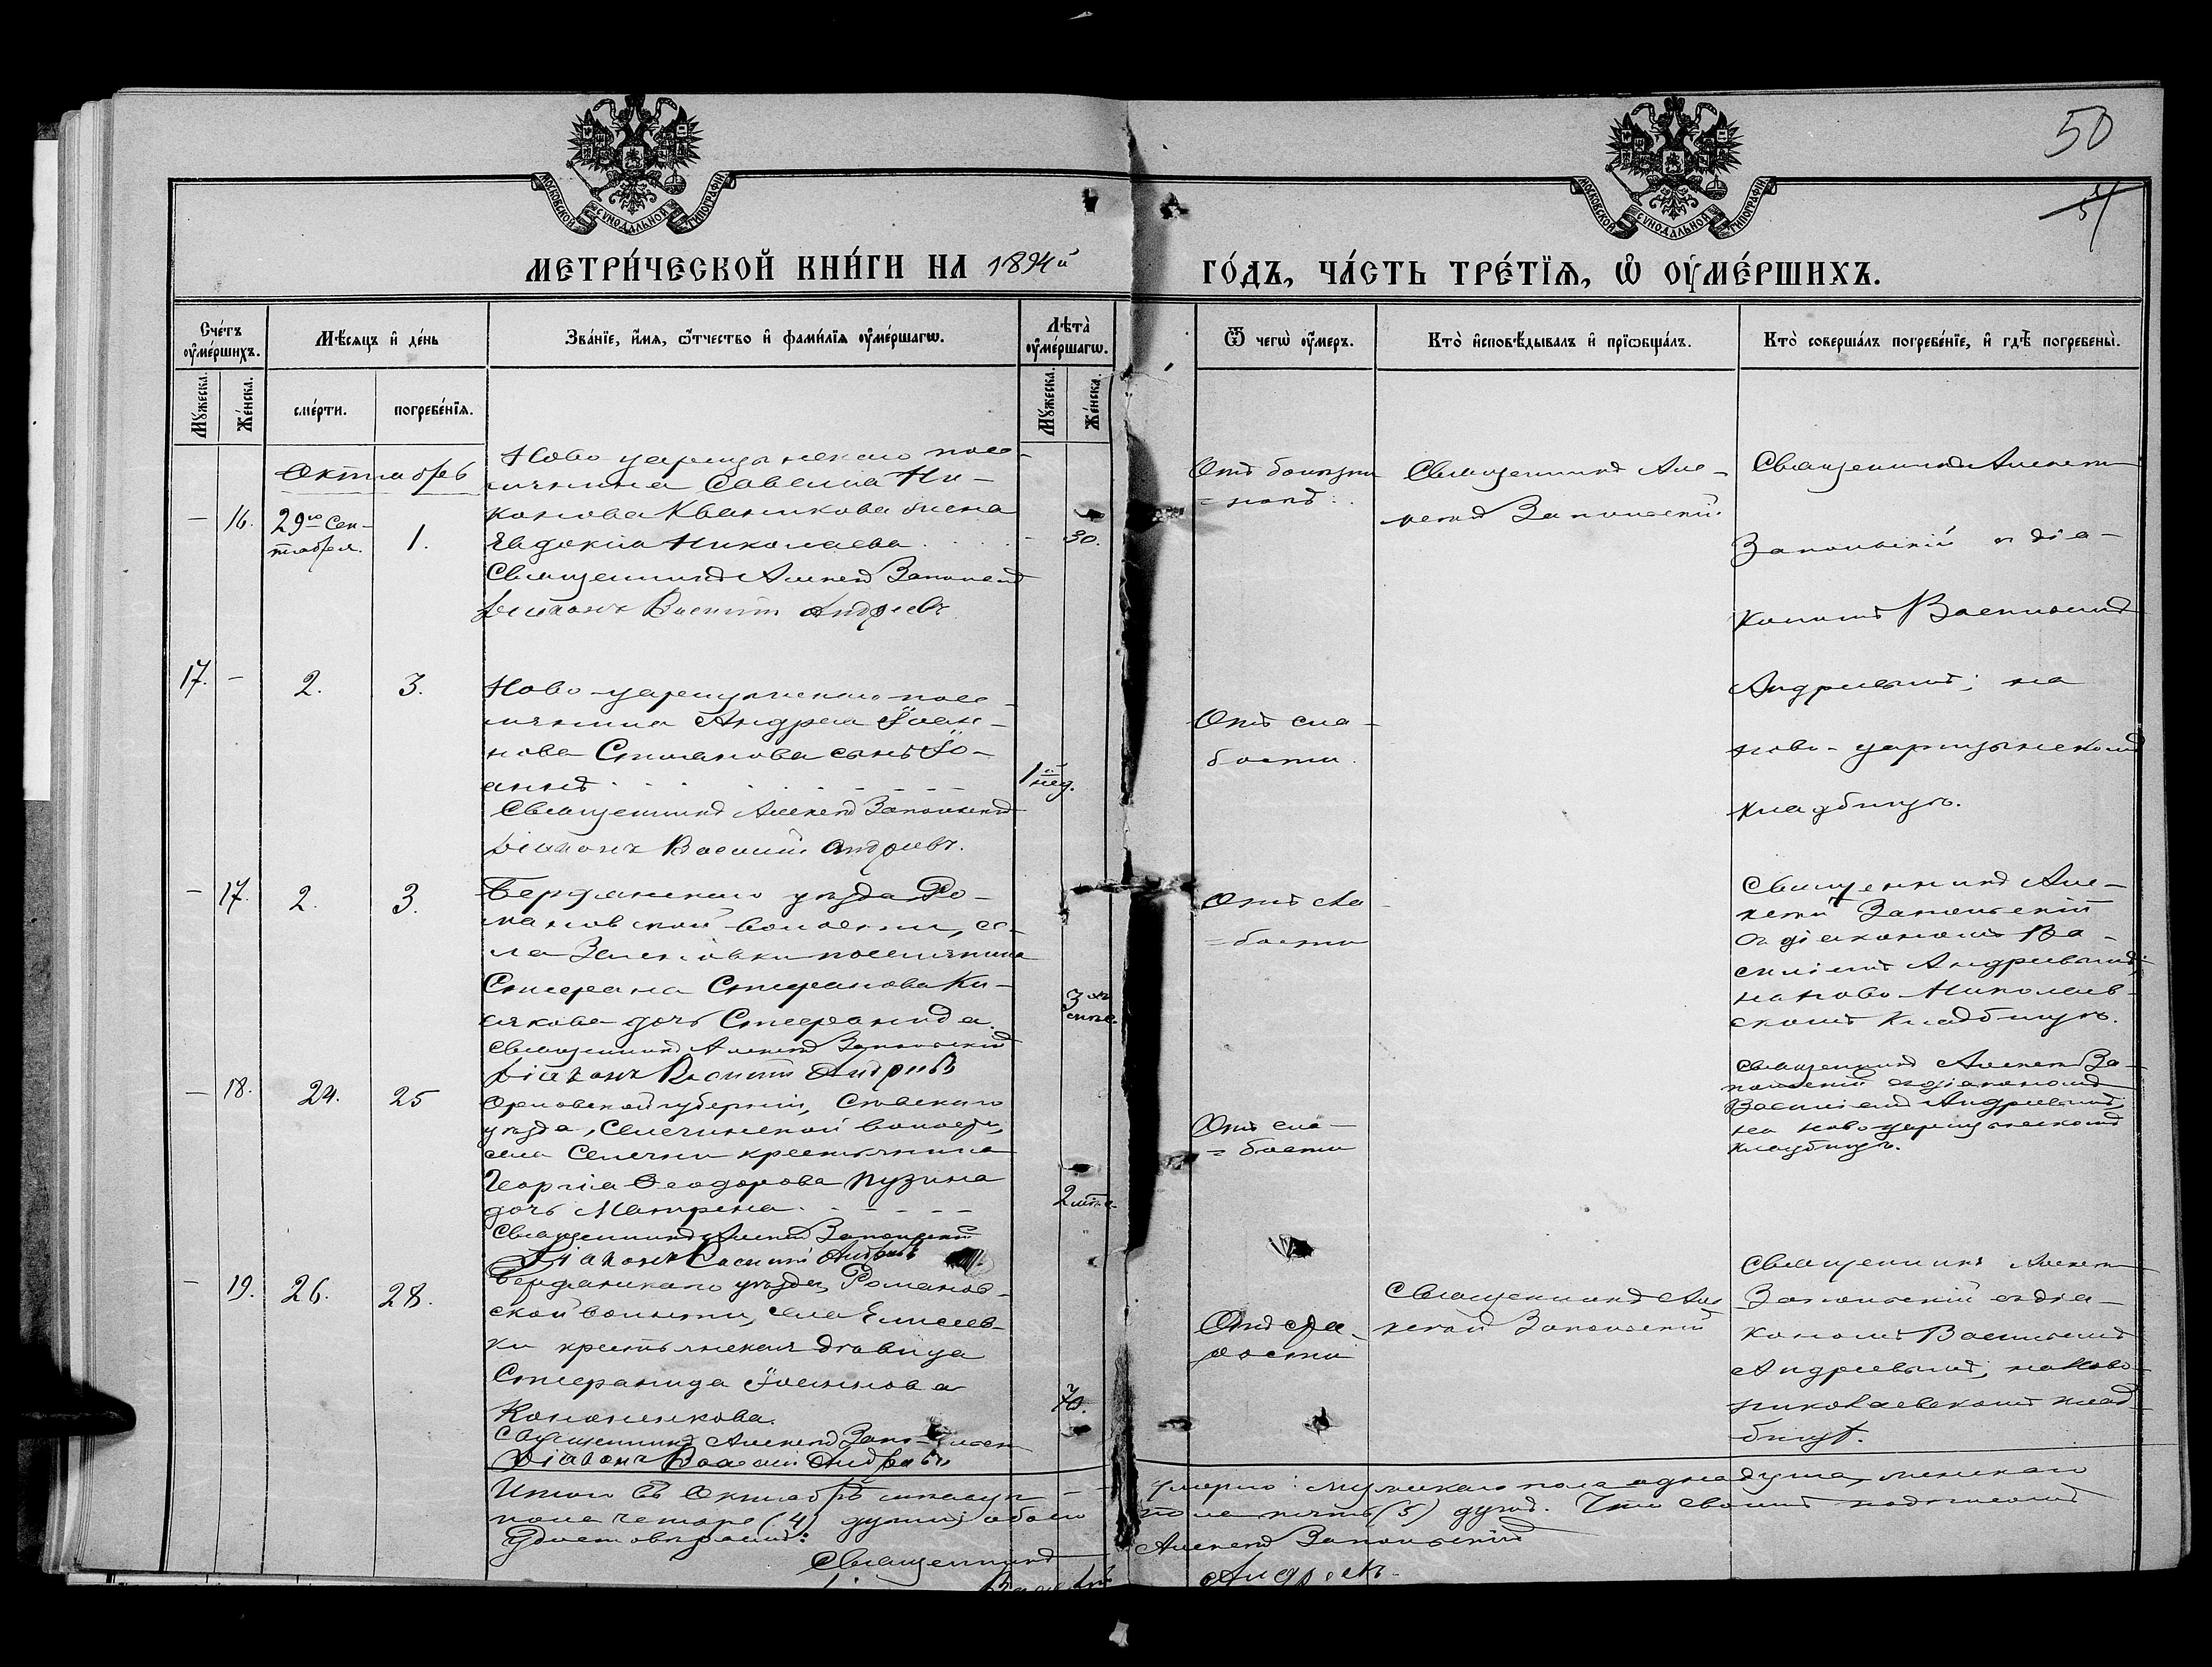 50
51
МОСКОВСКОЙ СѴНОДАЛЬНОЙ ТИПОГРАФІИ
МОСКОВСКОЙ СѴНОДАЛЬНОЙ ТИПОГРАФІИ
МЕТРИ́ЧЕСКОЙ КНИ́ГИ НА 1894й ГО́ДЪ, ЧА́СТЬ ТРЕ́ТЇѦ, Ѡ҆ ОУ҆МЕ́РШИХЪ.
Сче́тъ оу҆ме́ршихъ.
Мꙋ́жеска.
Же́нска.
Мѣ́сѧцъ и҆ де́нь
сме́рти.
погребе́нїѧ.
Зва́нїе, и҆́мѧ, ѻ҆́тчество и҆ фами́лїѧ оу҆ме́ршагѡ.
Лѣ̀та оу҆ме́ршагѡ.
Мꙋ́жеска.
Же́нска.
Ѿ чегѡ̀ оу҆́меръ.
Кто̀ и҆сповѣ́дывалъ и҆ прїѡбща́лъ.
Кто̀ соверша́лъ погребе́нїе, и҆ гдѣ̀ погребены̀.
Октябрь
— 16. 29го Сен-
тября. 1.
Ново царицынскаго посе-
лянина Савелія Ни-
конова Кваникова жена
Евдокія Николаева
30.
Священникъ Алексѣй Запольскій
Діаконъ Василій Андріевъ
Отъ болѣзни
Священникъ Але-
ксѣй Запольскій
Священникъ Алексѣй
Запольскій съ діа-
кономъ Василіемъ
Андріевымъ; на
ново-царицынскомъ
кладбищѣ.
17. — 2. 3.
Ново-царицынскаго посе-
лянина Андрея Іоан-
нова Стоянова сынъ Іо-
аннъ
1 нед.
Священникъ Алексѣй Запольскій
Діаконъ Василій Андріевъ.
Отъ сла-
бости.
— 17. 2. 3.
Бердянскаго уѣзда Ро-
мановской волости, се-
ла Зеленовки поселянина
Стефана Стефанова Ки-
сякова дочь Стефанида.
3х
Священникъ Алексѣй Запольскій
Діаконъ Василій Андріевъ
Отъ сла-
бости
Священникъ Але-
ксѣй Запольскій
съ діакономъ Ва-
силіемъ Андріевымъ,
на ново Николаев-
скомъ кладбищѣ.
— 18. 24. 25
Орловской губерніи, Сѣвскаго
уѣзда, Селечинской волости,
села Селечни крестьянина
Георгія Ѳеодорова Пузина
дочь Матрена.
2 лѣтъ.
Священникъ Алексѣй Запольскій
Діаконъ Василій Андріевъ
Отъ сла-
бости
Священникъ Алексѣй За-
польскій съ діакономъ
Василіемъ Андріевымъ,
на ново царицынскомъ
кладбищѣ.
— 19. 26. 28.
Бердянскаго уѣзда, Романов-
ской волости, села Елисеев-
ки крестьянская дѣвица
Стефанида Іоаннова
Кононенкова.
70.
Священникъ Алексѣй Запольскій
Діаконъ Василій Андріевъ
Отъ ста-
рости
Священникъ Але-
ксѣй Запольскій
Священникъ Алексѣй
Запольскій съ діа-
кономъ Василіемъ
Андріевымъ, на Ново-
николаевскомъ клад-
бищѣ.
Итого въ Октябрѣ мѣсяцѣ умерло: мужскаго пола одна душа, женскаго
пола четыре (4) души; обоего пола пять (5) душъ. Что своимъ подписомъ
удостовѣряемъ:
Священникъ Алексѣй Запольскій
Андріевъ